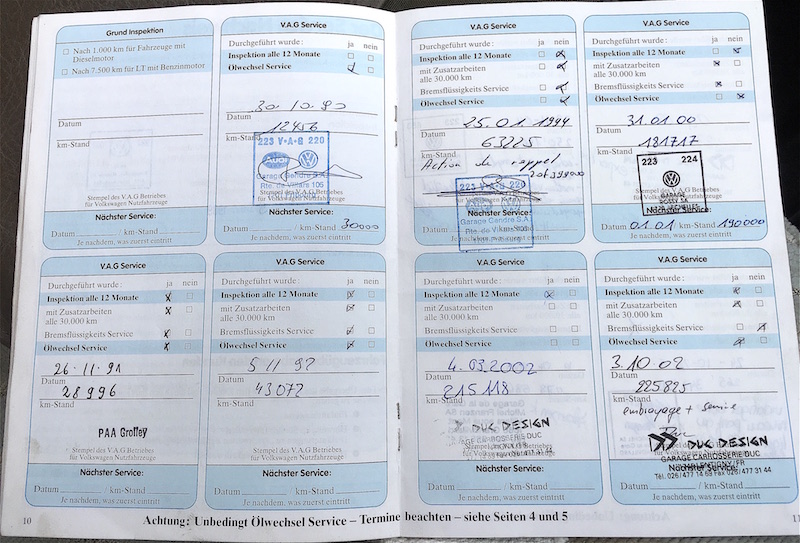 Grund Inspektion
Nach 1.000 km für Fahrzeuge mit
Dieselmotor
Nach 7.500 km für LT mit Benzinmotor
Datum
km-Stand
Stempel des V.A.G Betriebes
für Volkswagen Nutzfahrzeuge
Nächster Service:
Datum / km-Stand
Je nachdem, was zuerst eintritt
V.A.G Service
Durchgeführt wurde: ja nein
Inspektion alle 12 Monate
Ölwechsel Service
30.10.90
Datum
12456
km-Stand
223 V·A·G 220
Audi
Garage Gendre S.A.
Rte. de Villars 105
Stempel des V.A.G Betriebes
für Volkswagen Nutzfahrzeuge
Nächster Service:
Datum / km-Stand 30000
Je nachdem, was zuerst eintritt
V.A.G Service
Durchgeführt wurde: ja nein
Inspektion alle 12 Monate
mit Zusatzarbeiten
alle 30.000 km
Bremsflüssigkeits Service
Ölwechsel Service
26.11.91
Datum
28996
km-Stand
PAA Grolley
Stempel des V.A.G Betriebes
für Volkswagen Nutzfahrzeuge
Nächster Service:
Datum / km-Stand
Je nachdem, was zuerst eintritt
V.A.G Service
Durchgeführt wurde: ja nein
Inspektion alle 12 Monate
mit Zusatzarbeiten
alle 30.000 km
Bremsflüssigkeits Service
Ölwechsel Service
5 11 92
Datum
43072
km-Stand
Stempel des V.A.G Betriebes
für Volkswagen Nutzfahrzeuge
Nächster Service:
Datum / km-Stand
Je nachdem, was zuerst eintritt
10
V.A.G Service
Durchgeführt wurde: ja nein
Inspektion alle 12 Monate
mit Zusatzarbeiten
alle 30.000 km
Bremsflüssigkeits Service
Ölwechsel Service
25.01.1994
Datum
63225
km-Stand
Action de rappel
223 V·A·G 220
Garage Gendre S.A.
Nächster Service:
Datum
Je nachdem, was zuerst eintritt
V.A.G Service
Durchgeführt wurde: ja nein
Inspektion alle 12 Monate
mit Zusatzarbeiten
alle 30.000 km
Bremsflüssigkeits Service
Ölwechsel Service
31.01.00
Datum
181717
km-Stand
223 224
GARAGE
Stempel des V.A.G Betriebes
für Volkswagen Nutzfahrzeuge
Nächster Service:
Datum 01.01 / km-Stand 190000
Je nachdem, was zuerst eintritt
V.A.G Service
Durchgeführt wurde: ja nein
Inspektion alle 12 Monate
mit Zusatzarbeiten
alle 30.000 km
Bremsflüssigkeits Service
Ölwechsel Service
4.03.2002
Datum
215118
km-Stand
DUC DESIGN
GARAGE CARROSSERIE DUC
für Volkswagen Nutzfahrzeuge
Nächster Service:
Datum / km-Stand
Je nachdem, was zuerst eintritt
V.A.G Service
Durchgeführt wurde: ja nein
Inspektion alle 12 Monate
mit Zusatzarbeiten
alle 30.000 km
Bremsflüssigkeits Service
Ölwechsel Service
3.10 02
Datum
225825
km-Stand
embrayage + service
DUC DESIGN
GARAGE CARROSSERIE DUC
Nächster Service:
Tél. 026/477 14 68 Fax 026/477 31 44
Datum / km-Stand
Je nachdem, was zuerst eintritt
Achtung: Unbedingt Ölwechsel Service – Termine beachten – siehe Seiten 4 und 5